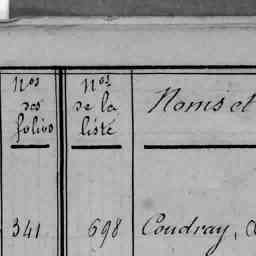 Nos des folios
Nos de la liste
Noms et
341
698
Coudray,